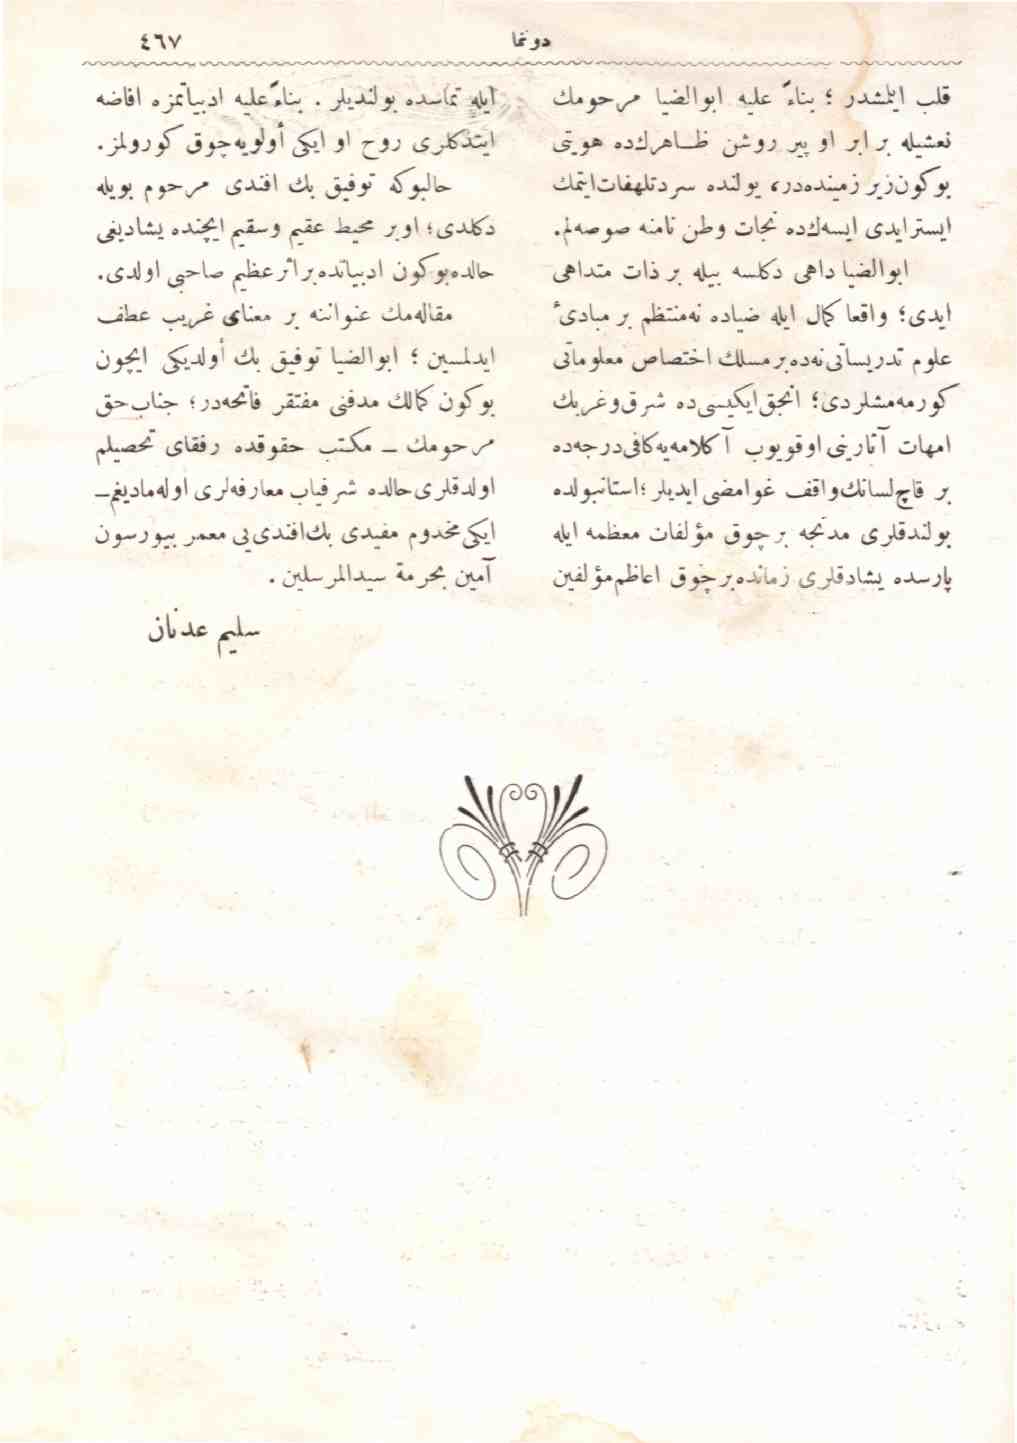 دونما
٤٦٧
قلب ایلمشدر ؛ بناءً علیه ابوالضیا مرحومك
نعشیله برابر او پیر روشن ظـاهرك‌ده هویتی
بوكون زیر زمینده‌در، یولنده سردتلهفات ایتمك
ایسترایدی ایسه‌ك‌ده نجات وطن نامنه صوصه‌لم.
ابوالضیا داهی دكلسه بیله بر ذات متداهی
ایدی؛ واقعا كمال ایله ضیاده نه‌منتظم بر مبادیٔ
علوم تدریساتی نه‌ده‌بر مسلك اختصاص معلوماتی
كورمه‌مشلردی؛ انجق ایكیسی‌ده شرق و غربك
امهات آثارینی اوقویوب آكلامه‌یه كافی درجه‌ده
بر قاچ لسانك واقف غوامضی ایدیلر ؛ استانبولده
بولندقلری مدتجه برچوق مؤلفات معظمه ایله
پارسده یشادقلری زمانده برچوق اعاظم مؤلفین
ایله تماسده بولندیلر . بناءً علیه ادبیاتمزه افاضه
ایتدكلری روح او ایكی أولویه چوق كورولمز.
حالبوكه توفیق بك افندی مرحوم بویله
دكلدی؛ اوبر محیط عقیم وسقیم ایچنده یشادیغی
حالده بوكون ادبیاتده بر اثر عظیم صاحبی اولدی.
مقاله‌مك عنواننه بر معنای غریب عطف
ایدلمسین ؛ ابوالضیا توفیق بك أولدیكی ایچون
بوكون كمالك مدفنی مفتقر فاتحه‌در؛ جناب حق
مرحومك ــ مكتب حقوقده رفقای تحصیلم
اولدقلری حالده شرفیاب معارفه‌لری اوله‌مادیغم ــ
ایكی مخدوم مفیدی بك افندی‌یی معمر بیورسون
آمین بحرمة سیدالمرسلین .
سلیم عدنان